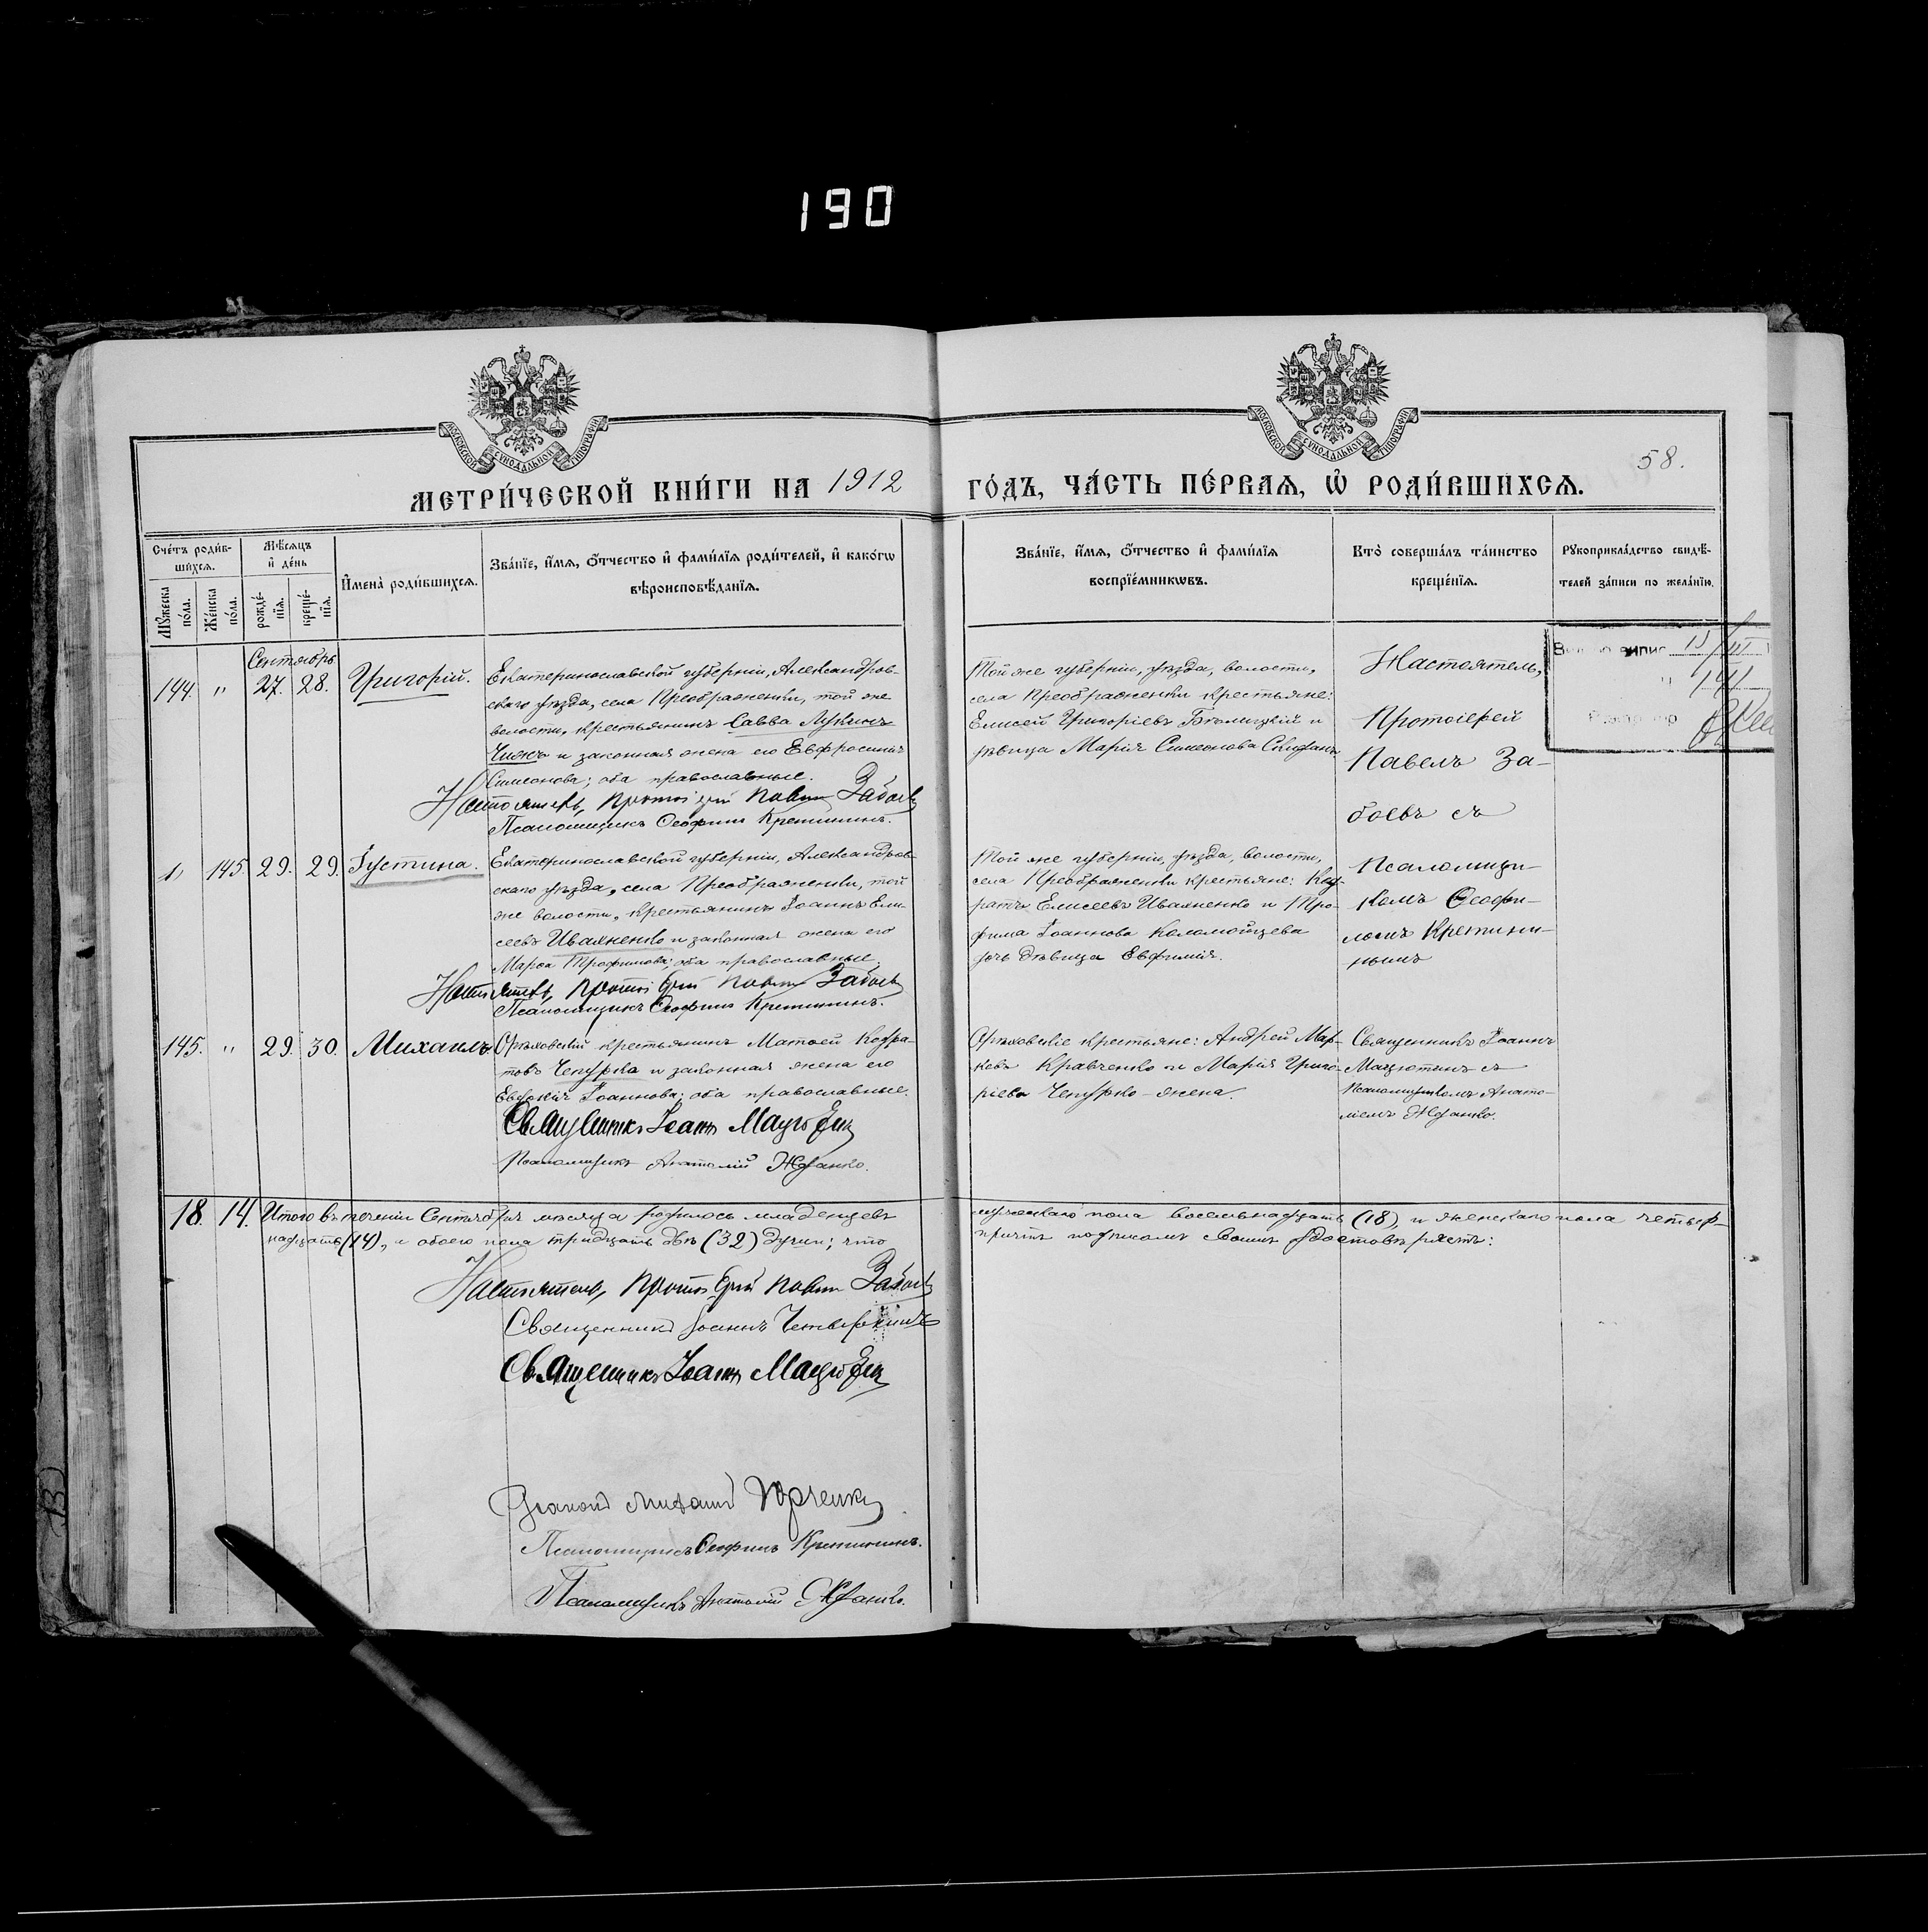 190
МОСКОВСКОЙ СѴНОДАЛЬНОЙ ТИПОГРАФІИ
МОСКОВСКОЙ СѴНОДАЛЬНОЙ ТИПОГРАФІИ
58.
МЕТРИ́ЧЕСКОЙ КНИ́ГИ НА 1912 ГО́ДЪ, ЧА́СТЬ ПЕ́РВАѦ, Ѡ РОДИ́ВШИХСѦ.
Сче́тъ роди́в-
шихсѧ.
Мꙋжеска по́ла.
Же́нска по́ла.
Мѣ́сѧцъ
и҆ де́нь
рожде́-
нїѧ.
креще́-
нїѧ.
И҆мена̀ роди́вшихсѧ.
Зва́нїе, и҆́мѧ, ѻ҆́тчество и҆ фами́лїѧ роди́телей, и҆ како́гѡ
вѣроисповѣ́данїѧ.
Зва́нїе, и҆́мѧ, ѻ҆́тчество и҆ фами́лїѧ
воспрїе́мникѡвъ.
Кто̀ соверша́лъ та́инство
креще́нїѧ.
Рꙋкоприкла́дство свидѣ́-
телей за́писи по жела́нїю.
Сентябрь
144. " 27. 28. Григорій.
Екатеринославской губерніи, Александров-
скаго уѣзда, села Преображенки, той же
волости, крестьянинъ Савва Лукинъ
Чижъ и законная жена его Евфросинія
Симеонова; оба православные.
Настоятель, Протоіерей Павелъ Забоевъ
Псаломщикъ Ѳеофилъ Кретининъ.
Той же губерніи, уѣзда, волости,
села Преображенки крестьяне:
Елисей Григоріевъ Бѣлицкій и
дѣвица Марія Симеонова
Настоятель,
Протоіерей
Павелъ За-
боевъ съ
15/III
141
" 145. 29. 29. Іустина.
Екатеринославской губерніи, Александров-
скаго уѣзда, села Преображенки, той
же волости, крестьянинъ Іоаннъ Ели-
сеевъ Иваненко и законная жена его
Марѳа Трофимова; оба православные.
Настоятель, Протоіерей Павелъ Забоевъ
Псаломщикъ Ѳеофилъ Кретининъ.
Той же губерніи, уѣзда, волости,
села Преображенки крестьяне: Код-
ратъ Елисеевъ Иваненко и Тро-
фима Іоаннова Коломойцева
дочь дѣвица Евфимія.
Псаломщи-
комъ Ѳеофи-
ломъ Кретини-
нымъ
145. " 29. 30. Михаилъ.
Орѣховскій крестьянинъ Матѳей Кодра-
товъ Чепурка и законная жена его
Евдокія Іоаннова; оба православные.
Священникъ Іоаннъ Мацютинъ
Псаломщикъ Анатолій Жданко.
Орѣховскіе крестьяне: Андрей Мар-
ковъ Кравченко и Марія Григо-
ріева Чепурко - жена.
Священникъ Іоаннъ
Мацютинъ съ
Псаломщикомъ Анато-
ліемъ Жданко.
18. 14. Итого въ теченіи Сентября мѣсяца родилось младенцевъ мужескаго пола восемьнадцать (18), и женскаго пола четыр-
надцать (14), и обоего пола тридцать двѣ (32) души; что причтъ подписомъ своимъ удостовѣряетъ:
Настоятель, Протоіерей Павелъ Забоевъ
Священникъ Іоаннъ Четверкинъ
Священникъ Іоаннъ Мацютинъ
Діаконъ Михаилъ Юрченко
Псаломщикъ Ѳеофилъ Кретининъ.
Псаломщикъ Анатолій Жданко.
13